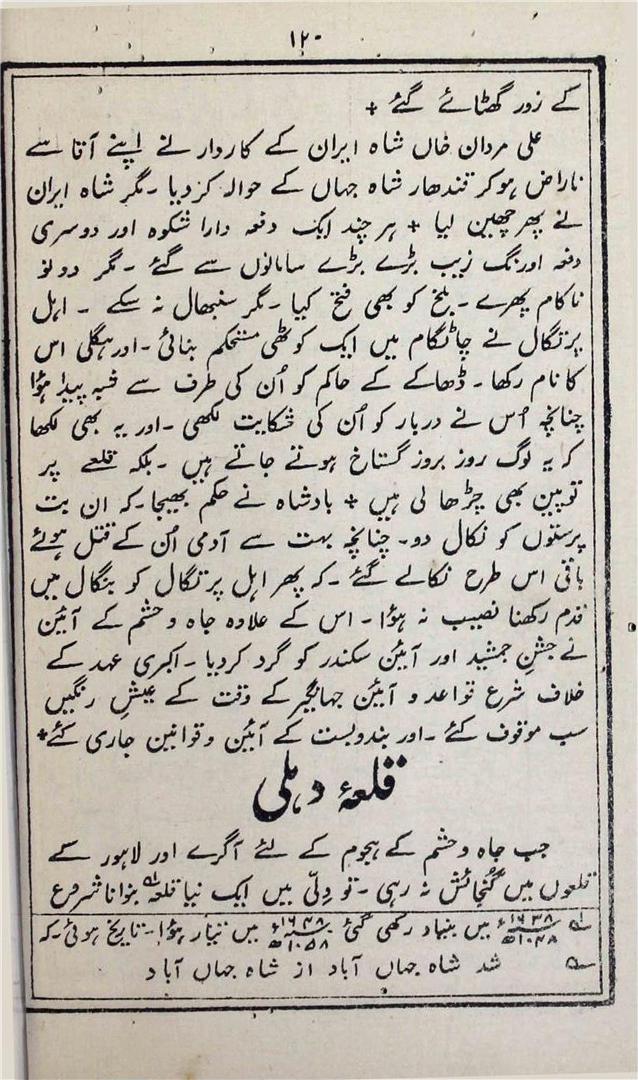 ۱۲۰
کے زور گھٹائے گئے +
علی مردان خاں شاہ ایران کے کاردار نے اپنے آقا سے
ناراض ہوکر قندھار شاہ جہاں کے حوالہ کردیا ۔ مگر شاہ ایران
نے پھر چھین لیا + ہر چند ایک دفعہ دارا شکوہ اور دوسری
دفعہ اورنگ زیب بڑے بڑے سامانوں سے گئے ۔ مگر دونو
ناکام پھرے ۔ بلخ کو بھی فتح کیا ۔ مگر سنبھال نہ سکے ۔ اہل
پرتگال نے چاٹگام میں ایک کوٹھی مستحکم بنائی ۔ اور ہگلی اس
کا نام رکھا ۔ ڈھاکے کے حاکم کو اُن کی طرف سے شبہ پیدا ہؤا
چنانچہ اُس نے دربار کو اُن کی شکایت لکھی ۔ اور یہ بھی لکھا
کہ یہ لوگ روز بروز گستاخ ہوتے جاتے ہیں ۔ بلکہ قلعے پر
توپین بھی چڑھا لی ہیں + بادشاہ نے حکم بھیجا ۔ کہ ان بت
پرستوں کو نکال دو ۔ چنانچہ بہت سے آدمی اُن کے قتل ہوئے
باقی اس طرح نکالے گئے ۔ کہ پھر اہل پرتگال کو بنگال میں
قدم رکھنا نصیب نہ ہؤا ۔ اس کے علاوہ جاہ و حشم کے آئین
نے جشنِ جمشید اور آئینِ سکندر کو گرد کردیا ۔ اکبری عہد کے
خلاف شرع قواعد و آئین جہانگیر کے وقت کے عیشِ رنگیں
سب موقوف کئے ۔ اور بندوبست کے آئین و قوانین جاری کئے +
قلعۂ دہلی
جب جاہ و حشم کے ہجوم کے لئے آگرے اور لاہور کے
قلعوں میں گنجائش نہ رہی ۔ تو دِلّی میں ایک نیا قلعہ بنوانا شروع
۱۶۳۸ء ۱۰۴۸ھ میں بنیاد رکھی گئی ۱۶۴۸ء ۱۰۵۸ھ میں تیار ہؤا ۔ تاریخ ہوئی ۔ کہ
شد شاہ جہاں آباد از شاہ جہاں آباد